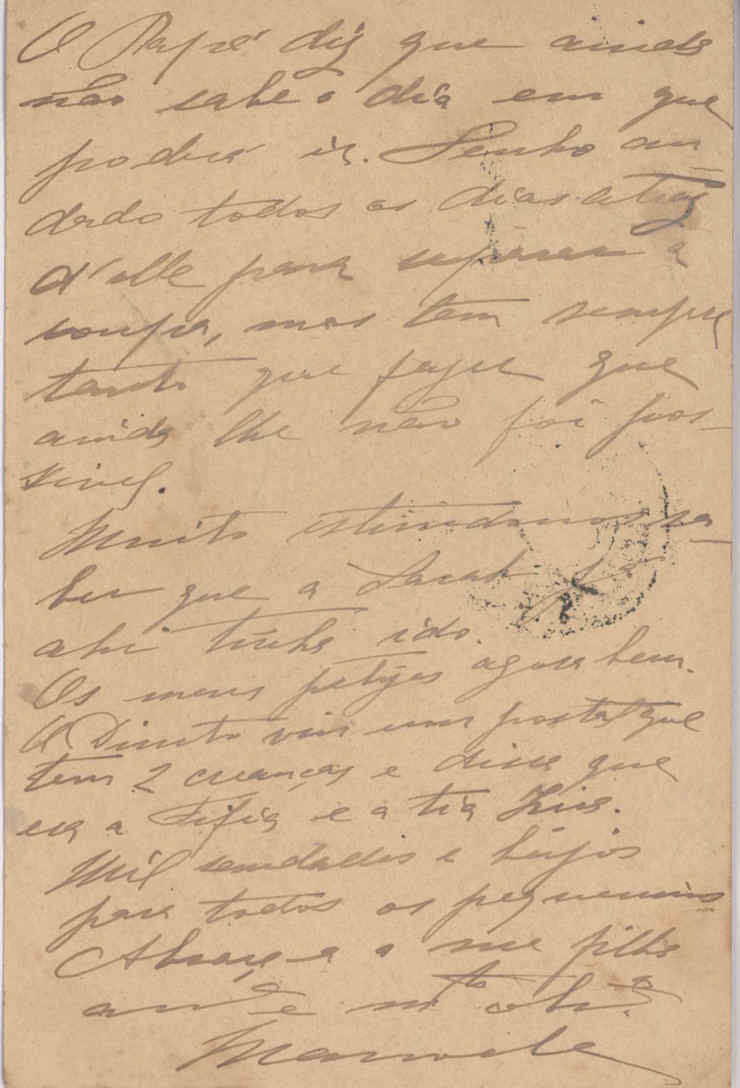 O Papá diz que ainda
não sabe o dia em que
poderá ir. Tenho an
dado todos os dias atraz
d'elle para separar a
roupa, mas tem sempre
tanto que fazer que
ainda lhe não foi pos-
sivel.
Muito estimámos sa-
ber que a Sarah já
ahi tinha ido.
Os meus petizes agora bem.
O viu um postal que
tem 2 crianças e disse que
era a Fifia e a tia
Mil saudades e beijos
para todos os pequeninos
Abraça-a a sua filha
am.ª e m.to obr.ª